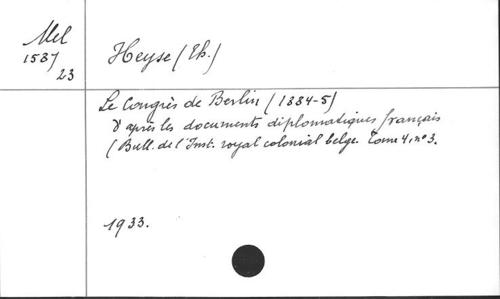 Mel
1537
23
Heyse (Th.)
Le Congrès de Berlin (1884-5)
D'après les documents diplomatiques français
(Bull. de l'Inst. royal colonial belge. Tome 4, n° 3.
1933.